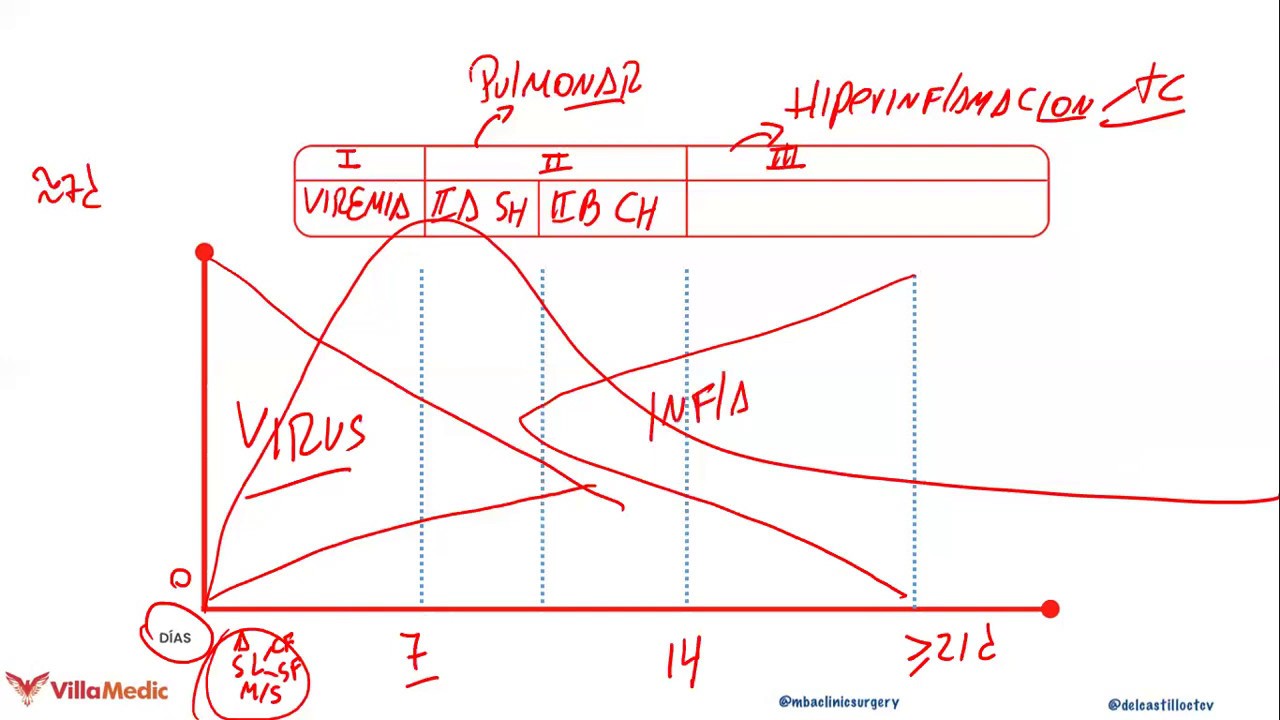 PULMONAR
HIPERINFLAMACION
≈7d
I II III
VIREMIA IIA SH IIB CH
VIRUS
INFLA
0
DÍAS
7 14 ≥21d
M/S
VillaMedic
@mbaclinicsurgery
@delcastilloctcv